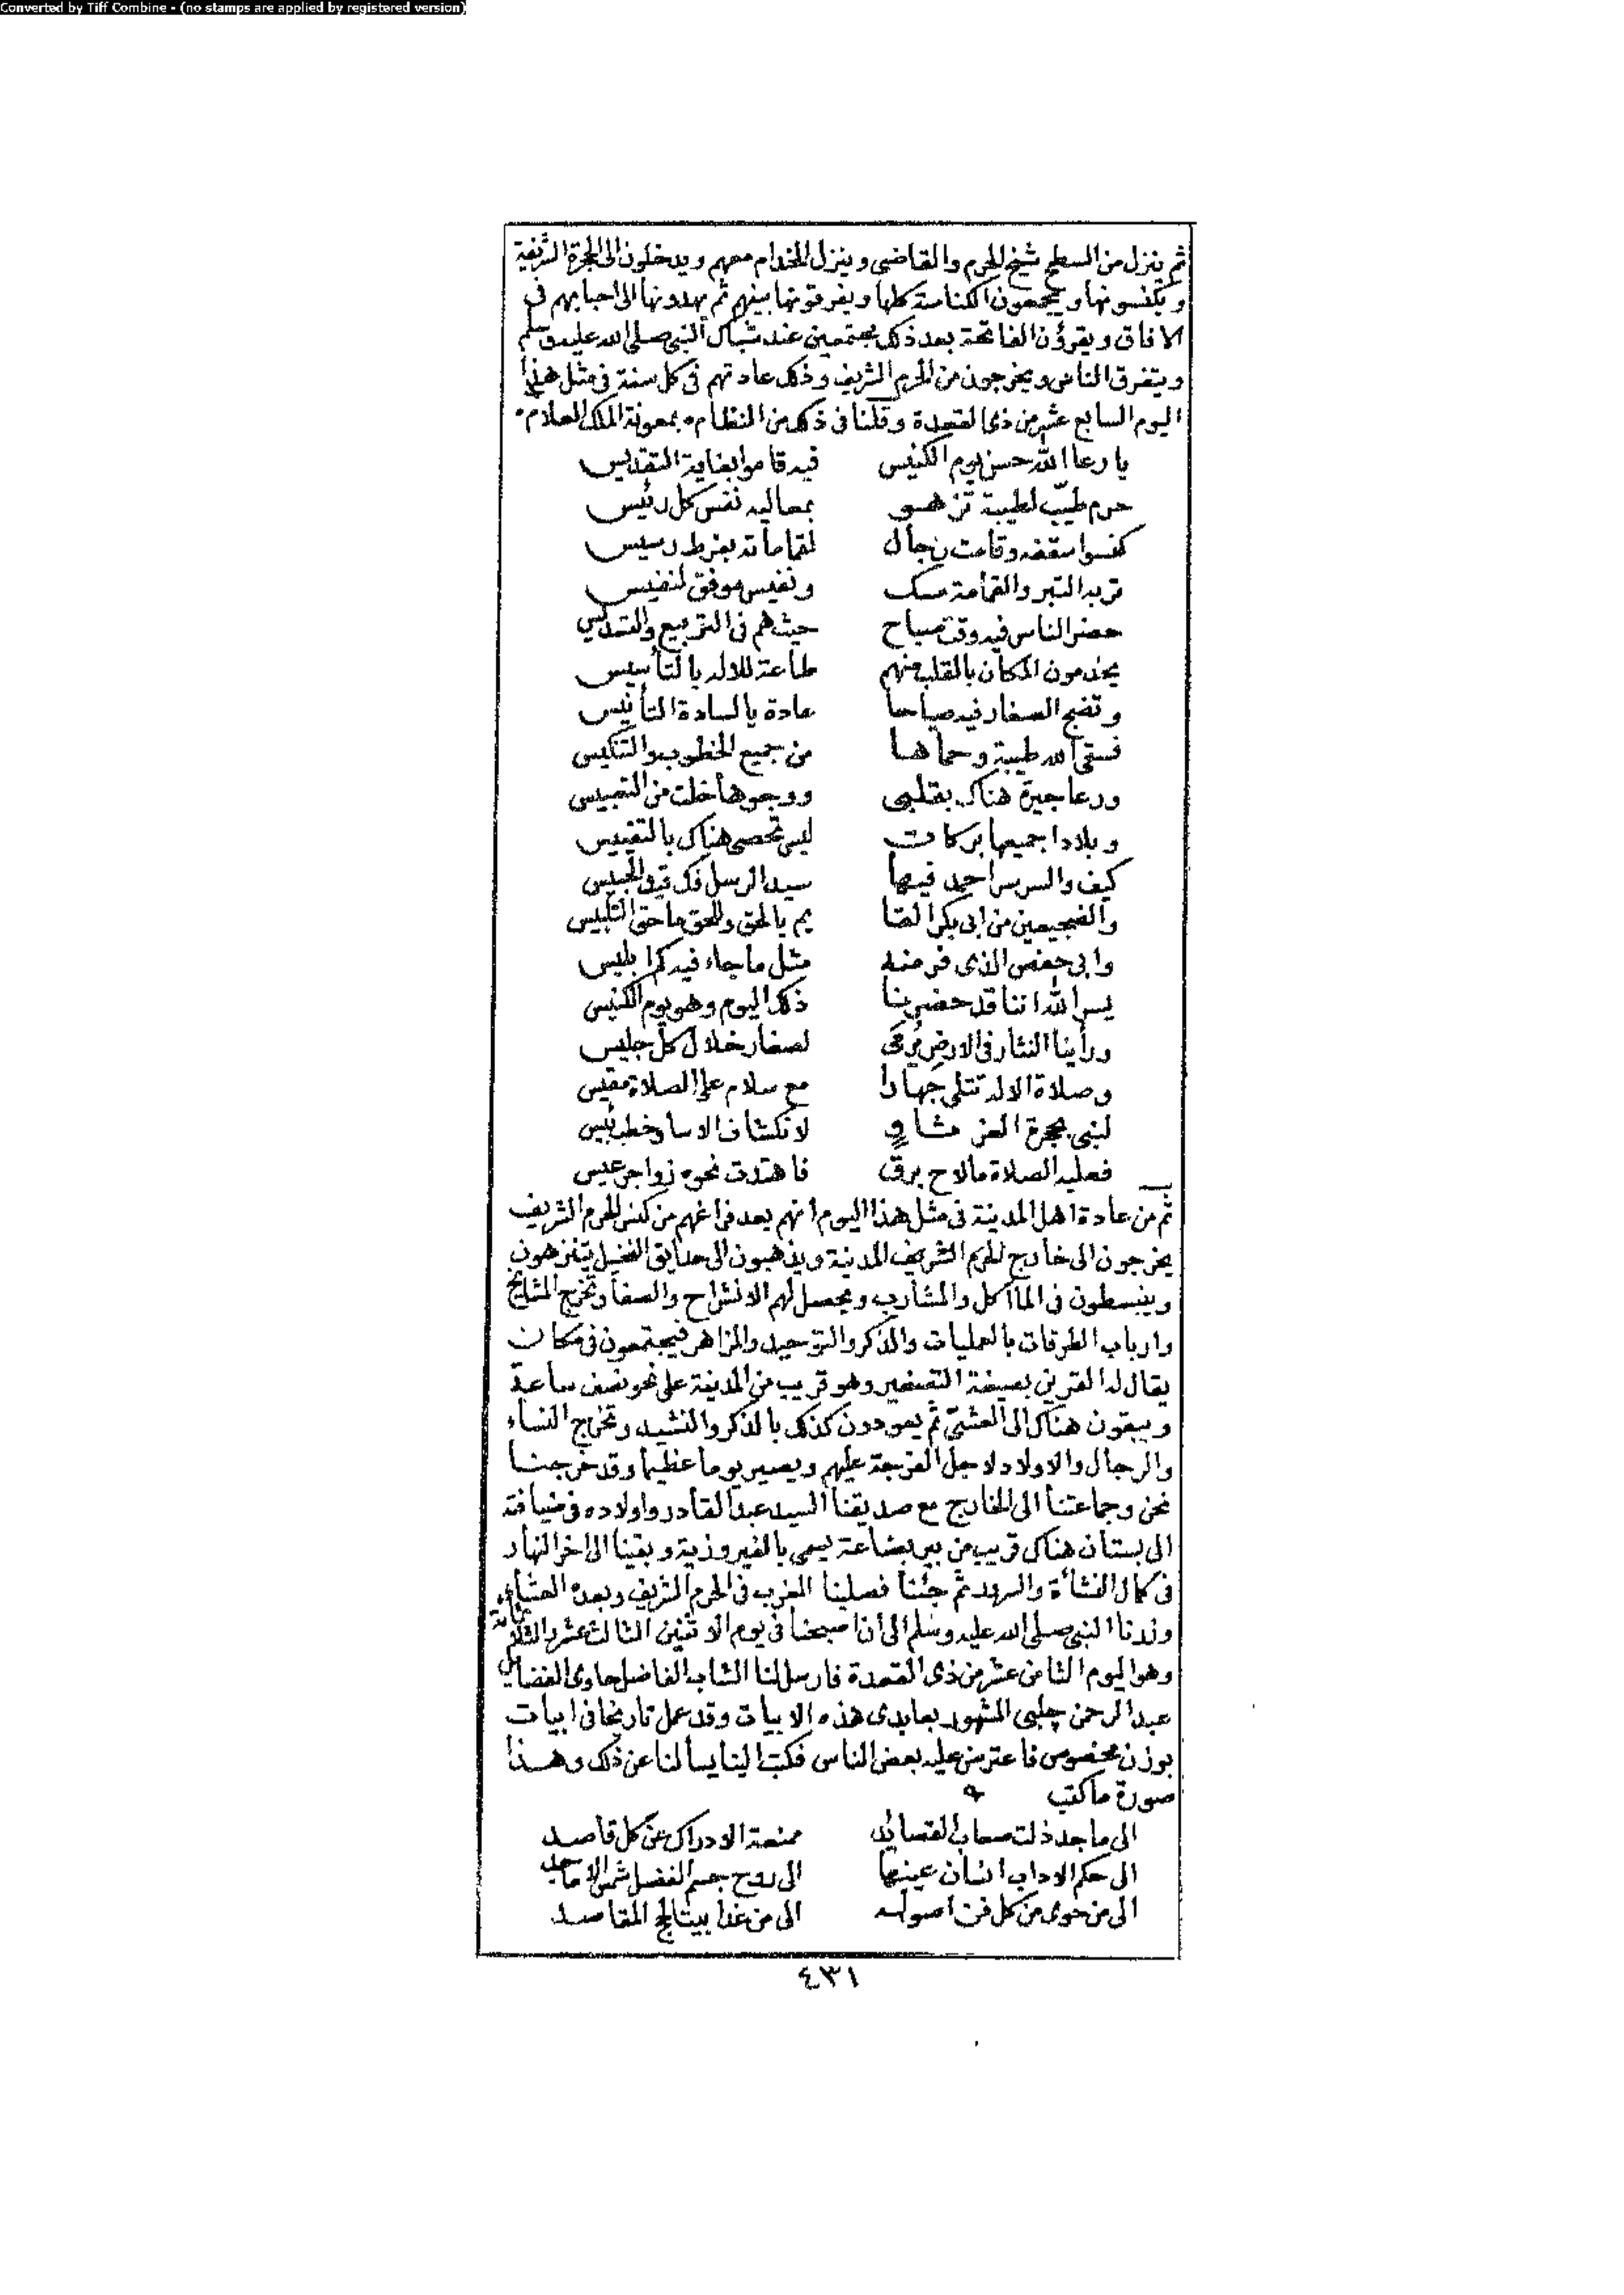 Converted by Tiff Combine - (no stamps are applied by registered version)
ثم ينزل من السطح شيخ الحرم والقاضى وينزل الخدام معهم ويدخلون الى الحجرة الشريفة
ويكنسونها ويجمعون الكناسة كلها ويفرقونها بينهم ثم يهدونها الى احبابهم فى
الافاق ويقرؤن الفاتحة بعد ذلك مجتمعين عند شباك النبى صلى الله عليه وسلم
ويتفرق الناس ويخرجون من الحرم الشريف وذلك عادتهم فى كل سنة فى مثل هذا
اليوم السابع عشر من ذى القعدة وقلنا فى ذلك من النظام بمعونة الملك العلام
يا رعا الله حسن يوم الكنيس فيه قاموا بغاية التقديس
حرم طيب لطيبة تزهو بمعاليه نفس كل رئيس
كنسوا سقفه وقامت رجال لقماماته بفرط رسيس
تربه التبر والقمامة مسك ونفيس موفق لنفيس
حضر الناس فيه وقت صباح حيث هم فى التربيع والتسديس
يخدمون المكان بالقلب منهم طاعة للاله بالتأسيس
وتضج الصغار فيه صياحا عادة يالسادة التأنيس
فسقى الله طيبة وحماها من جميع الخطوب والتنكيس
ورعا جيرة هناك بقلبى ووجوها خلت من التعبيس
وبلادا جميعها بركات ليس تحصى هناك بالتقييس
كيف والسر سر احمد فيها سيد الرسل فك قيد الحبيس
والضجيعين من ابى بكر القا يم بالحق وللحق ماحق التلبيس
وابى حفص الذى فر منه مثل ما جاء فيه كرا بليس
يسر الله اننا قد حضرنا ذلك اليوم وهو يوم الكنيس
ورأينا النثار فى الارض يرمى لصغار خلال كل جليس
وصلاة الاله تتلى جهارا مع سلام على الصلاة مقيس
لنبى بحجرة العز ثاو لانكشاف الاسا وخطب بئيس
فعليه الصلاة مالاح برق فاهتدت نحوه زواجر عيس
ثم من عادة اهل المدينة فى مثل هذا اليوم انهم بعد فراغهم من كنس الحرم الشريف
يخرجون الى خارج الحرم الشريف المدينة ويذهبون الى حدايق النخيل يتنزهون
وينبسطون فى المأاكل والمشارب ويحصل لهم الانشراح والصفا وتخرج المشايخ
وارباب الطرقات بالعمليات والذكر والتوحيد والمزاهر فيجتمعون فى مكان
يقال له القرين بصيغة التصغير وهو قريب من المدينة على نحو نصف ساعة
ويبقون هناك الى العشى ثم يعودون كذلك بالذكر والنشيد وتخرج النساء
والرجال والاولاد لاجل الفرجة عليهم ويصير يوما عظيما وقد خرجنا
نحن وجماعتنا الى الخارج مع صديقنا السيد عبد القادر واولاده فى ضيافة
الى بستان هناك قريب من بير بضاعة يسمى بالفيروزية وبقينا الى اخر النهار
فى كمال النشأة والسهد ثم جئنا فصلينا المغرب فى الحرم الشريف وبعده العشاء
وزرنا النبى صلى الله عليه وسلم الى أن اصبحنا فى يوم الاثنين الثالث عشر والثلاثمائة
وهو اليوم الثامن عشر من ذى القعدة فارسل لنا الشاب الفاضل حاوى الفضايل
عبد الرحمن چلبى المشهور بعابدى هذه الابيات وقد عمل تاريخا فى ابيات
بوزن مخصوص فاعترض عليه بعض الناس فكتب الينا يسألنا عن ذلك وهذا
صورة ما كتب
الى ماجد ذلت صعاب القصائد ممنعة الادراك عن كل قاصد
الى حكم الاداب انسان عينها الى روح جسم الفضل شمس الاماجد
الى من حوى من كل فن اصوله الى من غدا بيتا لحج المقاصد
٤٣١